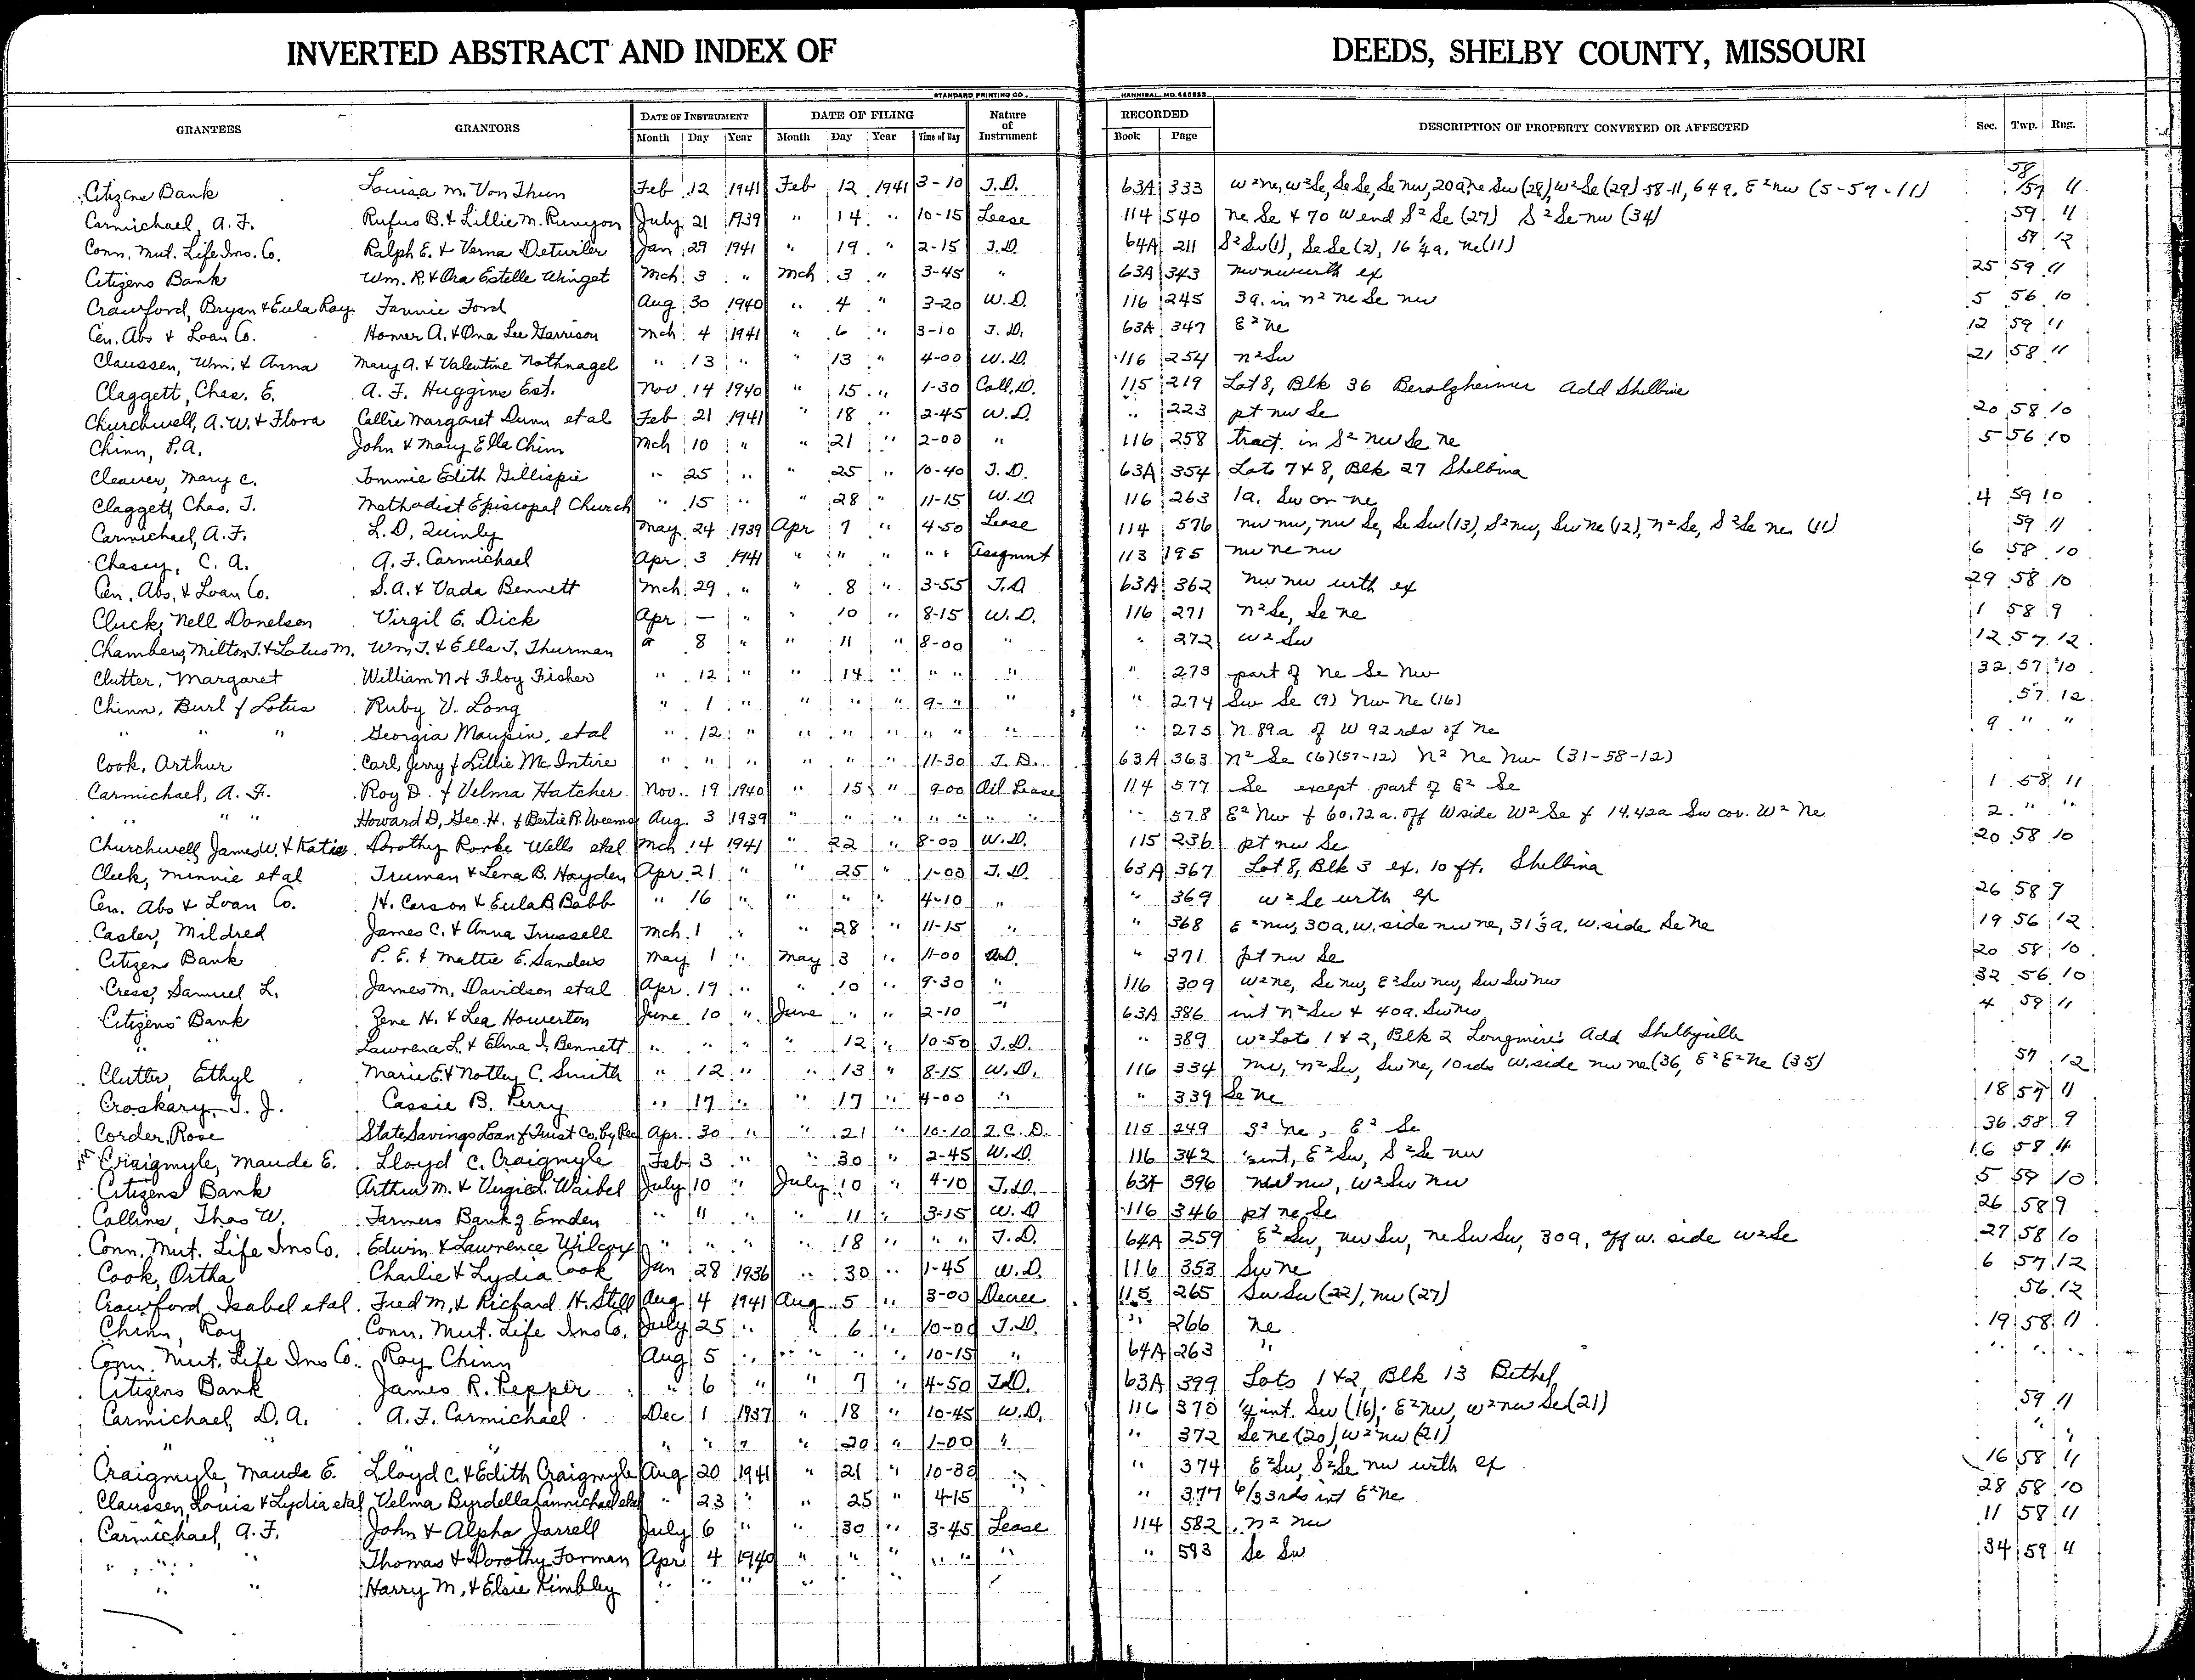 INVERTED ABSTRACT AND INDEX OF DEEDS, SHELBY COUNTY, MISSOURI
STANDARD PRINTING CO. HANNIBAL, MO.
GRANTEES GRANTORS DATE OF INSTRUMENT DATE OF FILING Nature of Instrument RECORDED DESCRIPTION OF PROPERTY CONVEYED OR AFFECTED Sec. Twp. Rng.
Month Day Year Month Day Year Time of Day Book Page
58
Citizens Bank Louisa M. Von Thun Feb 12 1941 Feb 12 1941 3-10 T.D. 63A 333 W²ne, W²Se, SeSe, Se nw, 20a ne Sw (28), W²Se (29) 58-11, 64a, E²nw (5-59-11) /59 11
Carmichael, A. F. Rufus B. & Lillie M. Runyon July 21 1939 " 14 " 10-15 Lease 114 540 ne Se & 70 W end S² Se (27) S² Se nw (34) 59 11
Conn. Mut. Life Ins. Co. Ralph E. & Verna Detwiler Jan 29 1941 " 19 " 2-15 T.D. 64A 211 S²Sw(1), SeSe (2), 16¼a, ne(11) 57 12
Citizens Bank Wm. R. & Ora Estelle Winget Mch 3 " Mch 3 " 3-45 " 63A 343 nwnw with ex 25 59 11
Crawford, Bryan & Eula Ray Fannie Ford Aug 30 1940 " 4 " 3-20 W.D. 116 245 3a. in n² ne Se nw 5 56 10
Cen. Abs & Loan Co. Homer A. & Oma Lee Garrison Mch 4 1941 " 6 " 3-10 T.D. 63A 347 E² ne 12 59 11
Claussen, Wm. & Anna Mary A. & Valentine Nothnagel " 13 " " 13 " 4-00 W.D. 116 254 n²Sw 21 58 11
Claggett, Chas. E. A. F. Huggins Est. Nov 14 1940 " 15 " 1-30 Coll. D. 115 219 Lot 8, Blk 36 Berolzheimer Add Shelbina
Churchwell, A. W. & Flora Callie Margaret Dunn et al Feb 21 1941 " 18 " 2-45 W.D. " 223 pt nw Se 20 58 10
Chinn, P.A. John & Mary Ella Chinn Mch 10 " " 21 " 2-00 " 116 258 tract. in S² nw Se ne 5 56 10
Cleaver, Mary C. Tommie Edith Gillispie " 25 " " 25 " 10-40 T.D. 63A 354 Lots 7 & 8, Blk 27 Shelbina
Claggett, Chas. T. Methodist Episcopal Church " 15 " " 28 " 11-15 W.D. 116 263 1a. Sw cor ne 4 59 10
Carmichael, A.F. L. D. Quimby May 24 1939 Apr 7 " 4-50 Lease 114 576 nw nw, nw Se, Se Sw (13), S²nw, Sw ne (12), n²Se, S²Se ne (11) 59 11
Chasey, C. A. A. F. Carmichael Apr 3 1941 " " " " " Asignmnt 113 195 nw ne nw 6 58 10
Cen. Abs. & Loan Co. S. A. & Vada Bennett Mch 29 " " 8 " 3-55 T.D 63A 362 nw nw with ex 29 58 10
Cluck, Nell Donelson Virgil E. Dick Apr — " " 10 " 8-15 W.D. 116 271 n²Se, Se ne 1 58 9
Chambers, Milton T. & Lotus M. Wm T. & Ella T. Thurman " 8 " 11 " 8-00 " " 272 W² Sw 12 57 12
Clutter, Margaret William N & Floy Fisher " 12 " " 14 " " " " " 273 part of Ne Se Nw 32 57 10
Chinn, Burl & Lotus Ruby V. Long " 1 " " " " 9- " " " 274 Sw Se (9) Nw Ne (16) 57 12
" " " Georgia Maupin, et al " 12 " " " " " " " " 275 N 89a of W 92 rds of Ne 9 " "
Cook, Arthur Carl, Jerry & Lillie McIntire " " " " " " 11-30 T.D. 63A 363 N² Se (6)(57-12) N² Ne Nw (31-58-12)
Carmichael, A. F. Roy D. & Velma Hatcher Nov. 19 1940 " 15 " 9-00 Oil Lease 114 577 Se except part of E² Se 1 58 11
" " " Howard D, Geo. H. & Bertie R. Weems Aug. 3 1939 " " " " " " " 578 E² Nw & 60.72 a. off W side W² Se & 14.42a Sw cor. W² Ne 2 " "
Churchwell, James W. & Katie Dorothy Rorke Wells et al Mch 14 1941 " 22 " 8-00 W.D. 115 236 pt nw Se 20 58 10
Cleek, Minnie et al Truman & Lena B. Hayden Apr 21 " " 25 " 1-00 T.D. 63A 367 Lot 8, Blk 3 ex. 10 ft. Shelbina
Cen. Abs & Loan Co. H. Carson & Eula B. Babb " 16 " " " " 4-10 " " 369 W² Se with ex 26 58 9
Casler, Mildred James C. & Anna Trussell Mch. 1 " " 28 " 11-15 " " 368 E²nw, 30a. W. side nw ne, 31⅓a. W. side Se ne 19 56 12
Citizens Bank P. E. & Mattie E. Sanders May 1 " May 3 " 11-00 " 371 pt nw Se 20 58 10
Cress, Samuel L. James M. Davidson et al Apr 19 " " 10 " 9-30 " 116 309 W²ne, Se nw, E²Sw nw, Sw Sw nw 32 56 10
Citizens Bank Zene H. & Lea Howerton June 10 " June " " 2-10 " 63A 386 int n²Sw & 40a. Sw nw 4 59 11
" " Lawrence L. & Elma I. Bennett " " " " 12 " 10-50 T.D. " 389 W² Lots 1 & 2, Blk 2 Longmire's Add Shelbyville
Clutter, Ethyl Marie E. & Notley C. Smith " 12 " " 13 " 8-15 W.D. 116 334 nw, n²Sw, Sw ne, 10 rds W. side nw ne (36, E²E²ne (35) 57 12
Croskary, T. J. Cassie B. Perry " 17 " " 17 " 4-00 " " 339 Se ne 18 57 11
Corder, Rose State Savings Loan & Trust Co, by Rec Apr. 30 " " 21 " 10-10 2.C.D. 115 249 S² Ne, E² Se 36 58 9
Craigmyle, Maude E. Lloyd C. Craigmyle Feb 3 " " 30 " 2-45 W.D. 116 342 int, E²Sw, S²Se nw 16 58 11
Citizens Bank Arthur M. & Virgie L. Waibel July 10 " July 10 " 4-10 T.D. 63A 396 nw nw, W²Sw nw 5 59 10
Collins, Thos W. Farmers Bank of Emden " 11 " " 11 " 3-15 W.D 116 346 pt ne Se 26 58 9
Conn. Mut. Life Ins Co. Edwin & Lawrence Wilcox " " " " 18 " " " T.D. 64A 259 E²Sw, nw Sw, ne Sw Sw, 30a, off w. side W²Se 27 58 10
Cook, Ortha Charlie & Lydia Cook Jan 28 1936 " 30 " 1-45 W.D. 116 353 Sw ne 6 57 12
Crawford, Isabel et al Fred M. & Richard H. Still Aug 4 1941 Aug 5 " 3-00 Decree 115 265 Sw Sw (22), nw (27) 56 12
Chinn, Roy Conn. Mut. Life Ins Co. July 25 " " 6 " 10-00 T.D. " 266 ne 19 58 11
Conn. Mut. Life Ins Co. Roy Chinn Aug 5 " " " " 10-15 " 64A 263 " " " "
Citizens Bank James R. Pepper " 6 " " 7 " 4-50 T.D. 63A 399 Lots 1 & 2, Blk 13 Bethel
Carmichael, D. A. A. F. Carmichael Dec 1 1937 " 18 " 10-45 W.D. 116 370 int. Sw (16); E²nw, W²nw Se (21) 59 11
" " " " " " " " 20 " 1-00 " " 372 Se ne (20), W²nw (21) " "
Craigmyle, Maude E. Lloyd C. & Edith Craigmyle Aug 20 1941 " 21 " 10-30 " " 374 E²Sw, S²Se nw with ex 16 58 11
Claussen, Louis & Lydia et al Velma Byrdella Carmichael et al " 23 " " 25 " 4-15 " " 377 6/33rds int E²ne 28 58 10
Carmichael, A. F. John & Alpha Jarrell July 6 " " 30 " 3-45 Lease 114 582 n² nw 11 58 11
" " " Thomas & Dorothy Forman Apr 4 1940 " " " " " " " 583 Se Sw 34 59 11
" " Harry M. & Elsie Kimbley " " " " " "